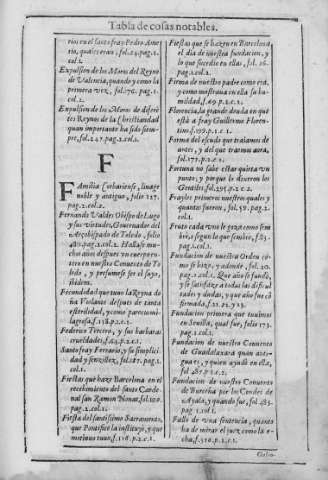 Tabla de cosas notables.
rio en el santo fray Pedro Ame-
rio, quales eran, fol. 24. pag. 1.
col. 2.
Expulsion de los Moros del Reyno
de Valencia, quando y como la
primera vez, fol. 76. pag. 1.
col. 2.
Expulsion de los Moros de diferẽ
tes Reynos de la Christiandad
quan importante ha sido siem-
pre, fol. 247. pag. 2. col. 1.
F
FAmilia Corbariense, linage
noble y antiguo, folio 127.
pag. 2. col. 2.
Fernando Valdes Obispo de Lugo
y sus virtudes, Governador del
Arçobispado de Toledo, folio
480. pag. 2. col. 2. Hallase mu-
chos años despues un cuerpo en-
tero en nuestro Convento de To-
ledo, y presumese ser el suyo,
ibidem.
Fecundidad que tuvo la Reyna do-
ña Violante despues de tanta
esterilidad, y como parecio mi-
lagrosa, f. 138. p. 2. c. 1.
Federico Tercero, y sus barbaras
crueldades, f. 64. p. 2. c. 1.
Santo fray Ferrario, y su simplici-
dad y senzillez, fol. 287. pag. 1.
col. 1.
Fiestas que haze Barcelona en el
recebimiento del santo Carde-
nal san Ramon Nonat, fol. 120.
pag. 2. col. 1.
Fiesta del santissimo Sacramento,
que Pontifice la instituyò, y que
motivos tuvo, f. 116. p. 2. c. 1.
Fiestas que se hazen en Barcelona,
el dia de nuestra fundacion, y
lo que sucedio en ellas, fol. 26.
pag. 1. col. 2.
Firma de nuestro padre como era,
y como mostrava en ella su hu-
mildad, f. 69. p. 2. c. 1.
Florencia, la grande deuda en que
està a fray Guillermo Floren-
tin, f. 199. p. 1. c. 1.
Forma del escudo que traiamos de
antes, y del que traemos aora,
fol. 172. p. 2. c. 1.
Fortuna no sabe estar quieta un
punto, y porque le dixeron los
Gentiles, fol. 295. p. 1. c. 2.
Frayles primeros nuestros quales y
quantos fueron, fol. 58. pag. 2.
col. 1.
Fruto cada uno le goza como sem-
brò, o segun lo que sembrò, f. 83.
pag. 1. col. 1.
Fundacion de nuestra Orden cõmo
se hizo, y adonde, fol. 20.
pag. 1. col. 1. Que año se fundò,
y se satisfaze a todas las dificul-
tades y dudas, y que año fue cõ
firmada, f. 22. 23. y 23.
Fundacion primera que tuvimos
en Sevilla, qual fue, folio 173.
pag. 2. col. 1.
Fundacion de nuestro Convento
de Guadalaxara quan anti-
gua es, y quien ayudò en ella,
fol. 487. p. 1. c. 2.
Fundacion de nuestro Convento
de Burceña por los Condes de
Ayala, y quando fue, fol. 485.
pag. 1. col. 1.
Fallo de una sentencia, quanto
ha de mirar el juez como la e-
cha, f. 510. p. 2. c. 1.